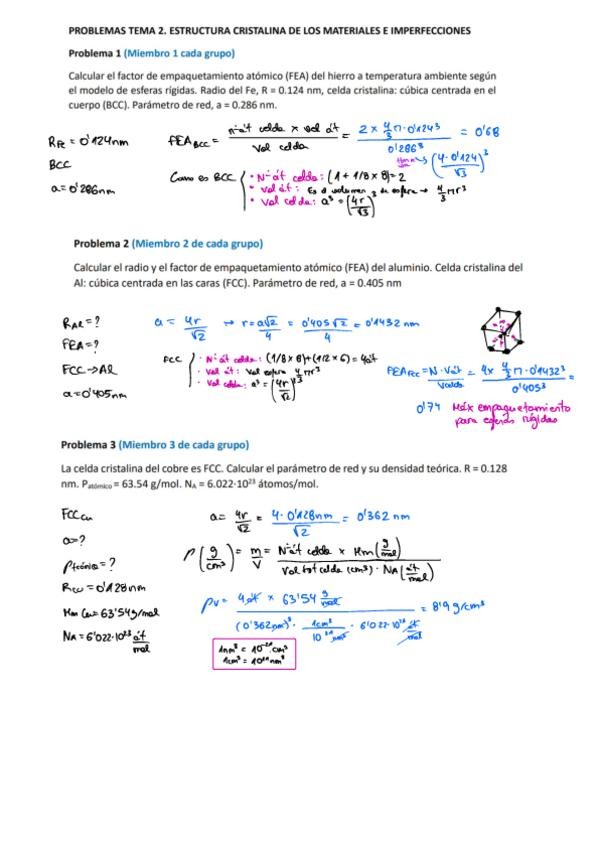 PROBLEMAS TEMA 2. ESTRUCTURA CRISTALINA DE LOS MATERIALES E IMPERFECCIONES
Problema 1 (Miembro 1 cada grupo)
Calcular el factor de empaquetamiento atómico (FEA) del hierro a temperatura ambiente según
el modelo de esferas rígidas. Radio del Fe, R = 0.124 nm, celda cristalina: cúbica centrada en el
cuerpo (BCC). Parámetro de red, a = 0.286 nm.
R_Fe = 0'124nm
BCC
a = 0'286nm
FEA_BCC = nº át celda x vol át / Vol celda = 2 x 4/3 π·0'124³ / 0'286³ = 0'68
(4·0'124/√3)³
Como es BCC
• Nº át celda: (1 + 1/8 x 8) = 2
• Vol át: Es el volumen de esfera → 4/3 πr³
• Vol celda: a³ = (4r/√3)³
Problema 2 (Miembro 2 de cada grupo)
Calcular el radio y el factor de empaquetamiento atómico (FEA) del aluminio. Celda cristalina del
Al: cúbica centrada en las caras (FCC). Parámetro de red, a = 0.405 nm
R_Al = ?
FEA = ?
FCC → Al
a = 0'405nm
a = 4r/√2 → r = a√2/4 = 0'405√2/4 = 0'1432 nm
FCC
• Nº át celda: (1/8 x 8) + (1/2 x 6) = 4 át
• Vol át: Vol esfera 4/3 πr³
• Vol celda: a³ = (4r/√2)³
FEA_FCC = N·Vát / Vcelda = 4x 4/3 π·0'1432³ / 0'405³ =
0'74 Máx empaquetamiento
para esferas rígidas
Problema 3 (Miembro 3 de cada grupo)
La celda cristalina del cobre es FCC. Calcular el parámetro de red y su densidad teórica. R = 0.128
nm. Patómico = 63.54 g/mol. NA = 6.022·10²³ átomos/mol.
FCC_Cu
a = ?
ρ teórica = ?
R_Cu = 0'128nm
Mm Cu = 63'54g/mol
NA = 6'022·10²³ át/mol
a = 4r/√2 = 4·0'128nm/√2 = 0'362 nm
ρ (g/cm³) = m/V = Nº át celda x Mm (g/mol) / Vol tot celda (cm³) · NA (át/mol)
ρv = 4 át x 63'54 g/mol / (0'362nm)³ · 1cm³/10²¹ nm³ · 6'022·10²³ át/mol = 8'9 g/cm³
1nm³ = 10⁻²¹ cm³
1cm³ = 10²¹ nm³